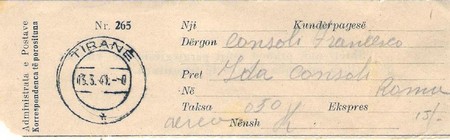 Administrata e Postave
Korrespondenca të porositura
Nr. 265
TIRANË
Nji Kundërpagesë
Dërgon Consoli Francesco
Pret Ida Consoli
Në Roma
Taksa 050 Ekspres
aereo Nënsh 15/-